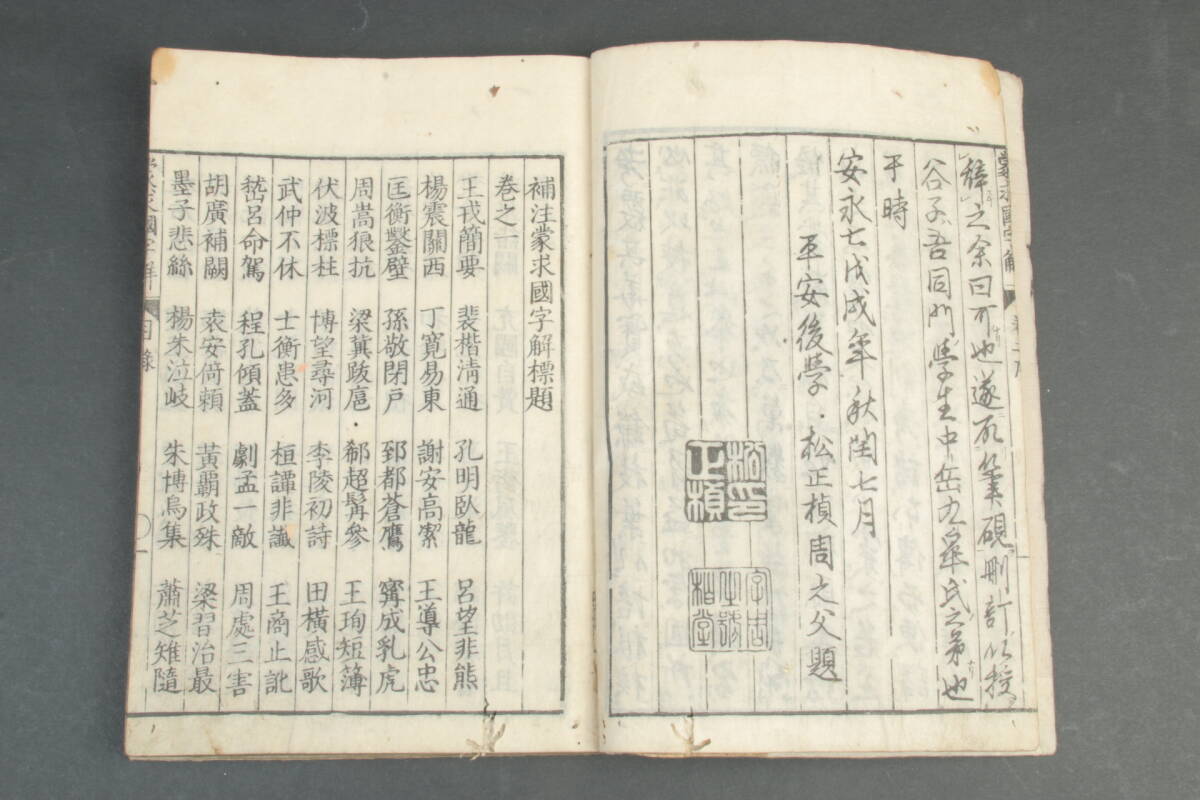 辞之余曰可也遂取筆硯刪訂以授
谷子吾同門學生中岳九皐氏之弟也
于時
安永七戊戌年秋閏七月
平安後學松正楨周之父題
松印正楨
字周
蒙求國字解
補注蒙求國字解標題
巻之一
王戎簡要 裴楷清通 孔明臥龍 呂望非熊
楊震關西 丁寬易東 謝安高潔 王導公忠
匡衡鑿壁 孫敬閉戸 郅都蒼鷹 寗成乳虎
周嵩狼抗 梁冀跋扈 郗超髯參 王珣短簿
伏波標柱 博望尋河 李陵初詩 田横感歌
武仲不休 士衡患多 桓譚非讖 王商止訛
嵆呂命駕 程孔傾蓋 劇孟一敵 周處三害
胡廣補闕 袁安倚賴 黃霸政殊 梁習治最
墨子悲絲 楊朱泣岐 朱博烏集 蕭芝雉隨
蒙求國字解 目錄 一